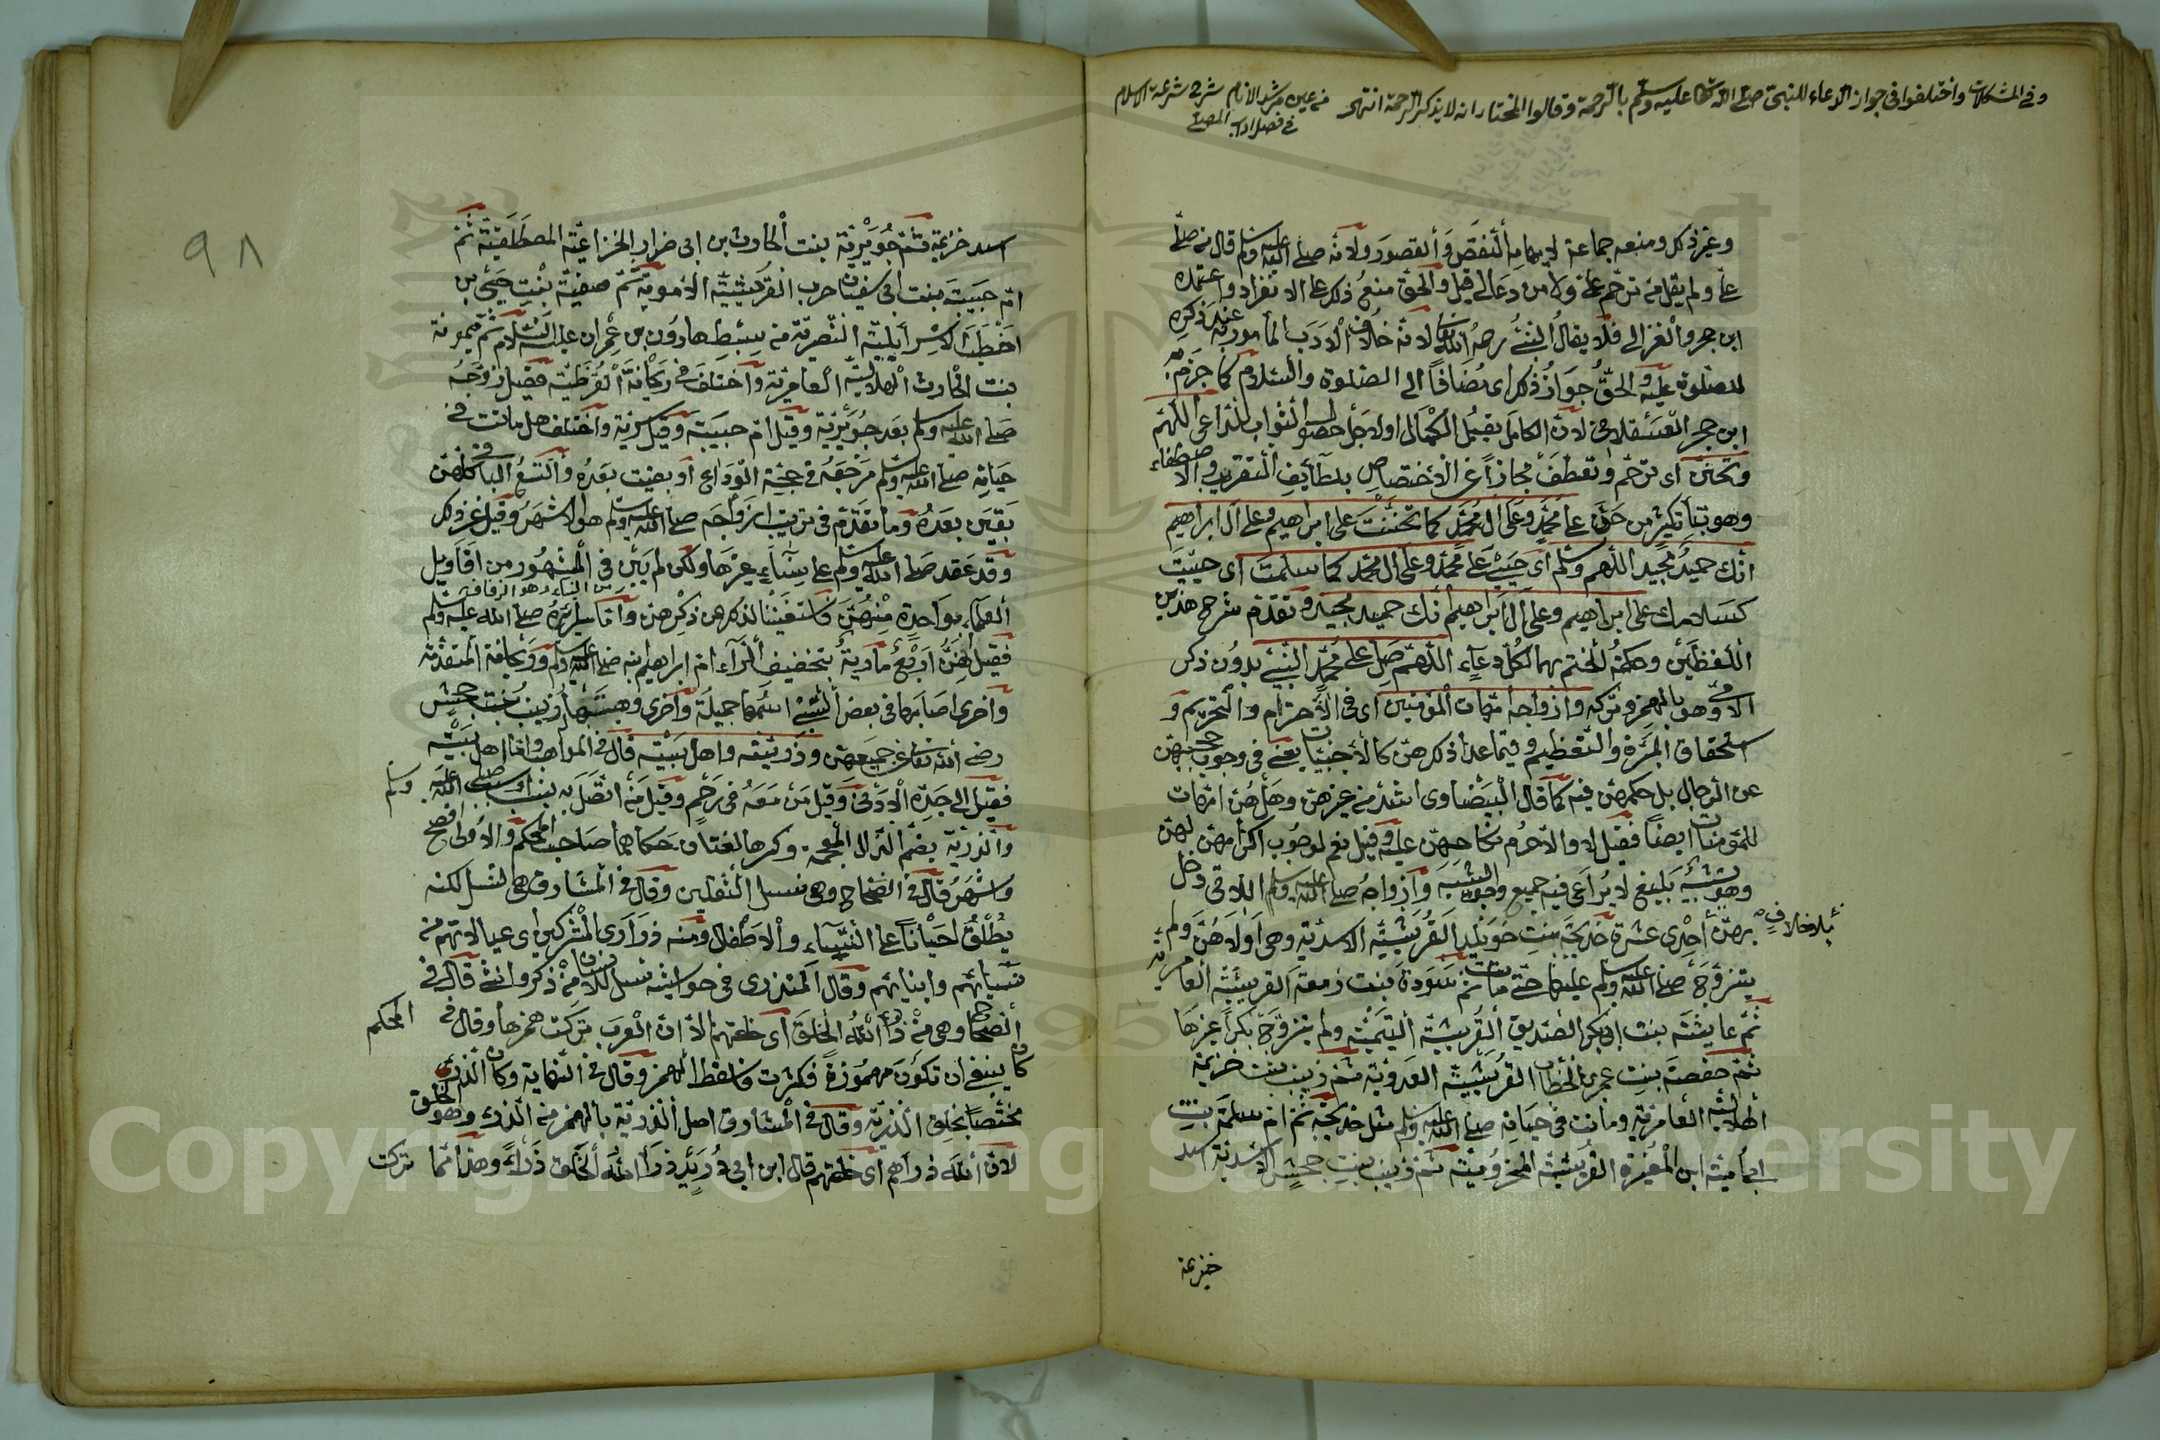 وفي المشكلات واختلفوا في جواز الدعاء للنبي صلى الله تعالى عليه وسلم بالرحمة وقالوا المختار انه لا يذكر الرحمة انتهى من عين مرشد الانام شرح شرعة الاسلام
في فصل اداب المصلى
وغير ذلك ومنعه جماعة لايهامه النقص والقصور ولانه صلى الله عليه وسلم قال من صلى
علي ولم يقل من ترحم علي ولا من دعا لي قيل والحق منع ذلك على الانفراد واعتمده
ابن حجر والغزالي فلا يقال النبي رحمه الله تعالى لانه خلاف الادب المأمور به عند ذكره
للصلوة عليه والحق جواز ذلك اي مضافا الى الصلوة والسلام كما جزم به
ابن حجر العسقلاني لان الكامل يقبل الكمال او لاجل حصول الثواب للداعي اللهم
وتحنن اي ترحم وتعطف مجازا عن الاختصاص بلطايف التقريب والاصطفاء
وهو بتأ تكثير من حن على محمد وعلى ال محمد كما تحننت على ابراهيم وعلى ال ابراهيم
انك حميد مجيد اللهم وسلم اي حي على محمد وعلى ال محمد كما سلمت اي حييت
كسلامك على ابراهيم وعلى ال ابراهيم انك حميد مجيد وتقدم شرح هذين
اللفظين وحكمة الختم بهما لكل دعاء اللهم صل على محمد النبي بدون ذكر
الامي وهو بالهمز وتركه وازواجه امهات المؤمنين اي في الاحترام والتحريم و
استحقاق المبرة والتعظيم وفيما عدا ذكرهن كالاجنبيات يعني في وجوب حجبهن
عن الرجال بل حكمهن فيه كما قال البيضاوي اشد من غيرهن وهل هن امهات
للمؤمنات ايضا فقيل لا والا حرم نكاحهن عليه وقيل نعم لوجوب اكرامهن لهن
وهو تشبيه بليغ لا يراعى فيه جميع وجوه الشبه وازواجه صلى الله عليه وسلم اللاتي دخل
بهن احدى عشرة خديجة بنت خويلد القرشية الاسدية وهي اولاهن ولم
بلا خلاف
يتزوج صلى الله عليه وسلم عليها حتى ماتت ثم سودة بنت زمعة القرشية العامرية
ثم عايشة بنت ابي بكر الصديق القرشية التيمية ولم يتزوج بكرا غيرها
ثم حفصة بنت عمر بن الخطاب القرشية العدوية ثم زينب بنت خزيمة
الهلالية العامرية وماتت في حياته صلى الله عليه وسلم مثل خديجة ثم ام سلمة بنت
ابي امية ابن المغيرة القرشية المخزومية ثم زينب بنت جحش الاسدية اسد
خزيمة
٩٨
اسد خزيمة ثم جويرية بنت الحارث بن ابي ضرار الخزاعية المصطلقية ثم
ام حبيبة بنت ابي سفيان حرب القرشية الاموية ثم صفية بنت حيي بن
اخطب الاسرأيلية النضرية من سبط هارون بن عمران عليه السلام ثم ميمونة
بنت الحارث الهلالية العامرية واختلف في ريحانة القرظية فقيل زوجه
صلى الله عليه وسلم بعد جويرية وقيل ام حبيبة وقيل سرية واختلف هل ماتت في
حياته صلى الله عليه وسلم مرجعه في حجة الوداع او بقيت بعده والتسع البا في كلهن
بقين بعده وما تقدم في ترتيب ازواجه صلى الله عليه وسلم هو الاشهر وقيل غير ذلك
وقد عقد صلى الله عليه وسلم على نساء غيرها ولكن لم يبن في المشهور من اقاويل
من البناء وهو الزفاف
العلماء بواحدة منهن فاستغنينا لذلك عن ذكرهن واما سراريه صلى الله عليه وسلم
فقيل انهن اربع مارية بتخفيف الراء ام ابراهيم ابنه صلى الله عليه وسلم وريحانة المتقدمة
واخرى اصابها في بعض السبي اسمها جميلة واخرى وهبتها زينب بنت جحش
رضي الله تعالى عن جميعهن وذريته واهل بيته قال في المواهب واما اهل بيته
فقيل الى جده الادنى وقيل من معه في رحم وقيل من اتصل به بنسب صلى الله عليه وسلم
والذرية بضم الذال المعجمة وكسرها لغتان حكاهما صاحب المحكم والاولى افصح
واشهر قال في الصحاح وهي نسل الثقلين وقال في المشارق هي النسل لكنه
يطلق احيانا على النساء والاطفال ومنه ذراري المشركين اي عيالاتهم من
نسايهم وابنايهم وقال المنذري في حواشيه نسل الانسان من ذكر وانثى قال في
الصحاح وهي من ذرأ الله الخلق اي خلقهم الا ان العرب تركت همزها وقال في المحكم
كان ينبغي ان تكون مهموزة فكثرت فاسقط الهمز وقال في النهاية وكأن الذرء
مختص بخلق الذرية وقال في المشارق اصل الذرية بالهمز من الذرء وهو الخلق
لان الله ذرأهم اي خلقهم قال ابن ابي دريد ذرأ الله الخلق ذرأ وهذا مما تركت
Copyright © King Saud University